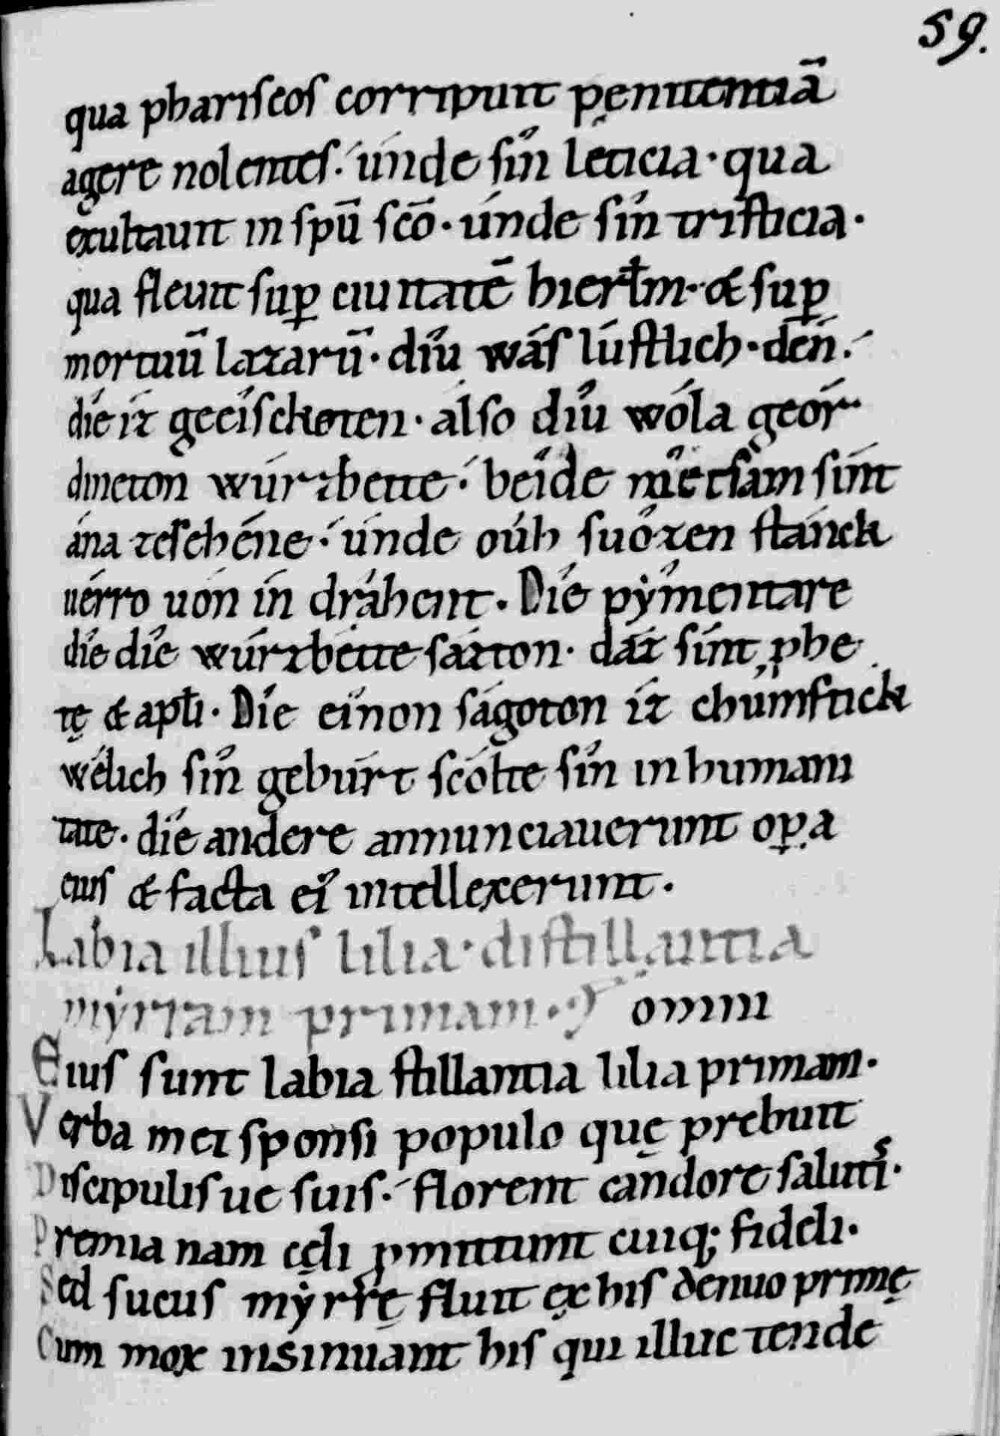 59.
qua phariſeos corripuit penitentiā
agere nolenteſ. únde ſín lęticia · qua
exultauit in ſpū ſcō · únde ſín triſticia ·
qua fleuit ſup ciuitatē hierłm · & ſup
mortuū lazarū · díu wáſ lúſtlich · den
díe iz geeíſchoten · alſo díu wóla geór
dineton wúrzbette · beíde ſint
ána zeſehéne · únde oúh ſuózen ſtánck
uérro uón ín dráhent. Díe pýmentare
díe díe wúrzbette ſázton · daz ſínt ,phe
tę & apłi · Díe eínon ſágoton iz chúmftick
wélich ſín gebúrt ſcólte ſín in humani
tate · díe andere annunciauerunt oꝑa
eius & facta eí intellexerunt ·
Labia illius lilia · diſtillantia
mýrram primam · omin
Eiuſ ſunt labia ſtillantia lilia primam ·
Verba mei ſponſi populo quę prebuit
Diſcipuliſue ſuis · florent candore ſaluti ·
Premia nam cęli ꝓmittunt cuiq; fideli ·
Sed ſucus mýrrę fluit ex hiſ denuo primę
Cum mox insinuant hiſ qui illuc tende